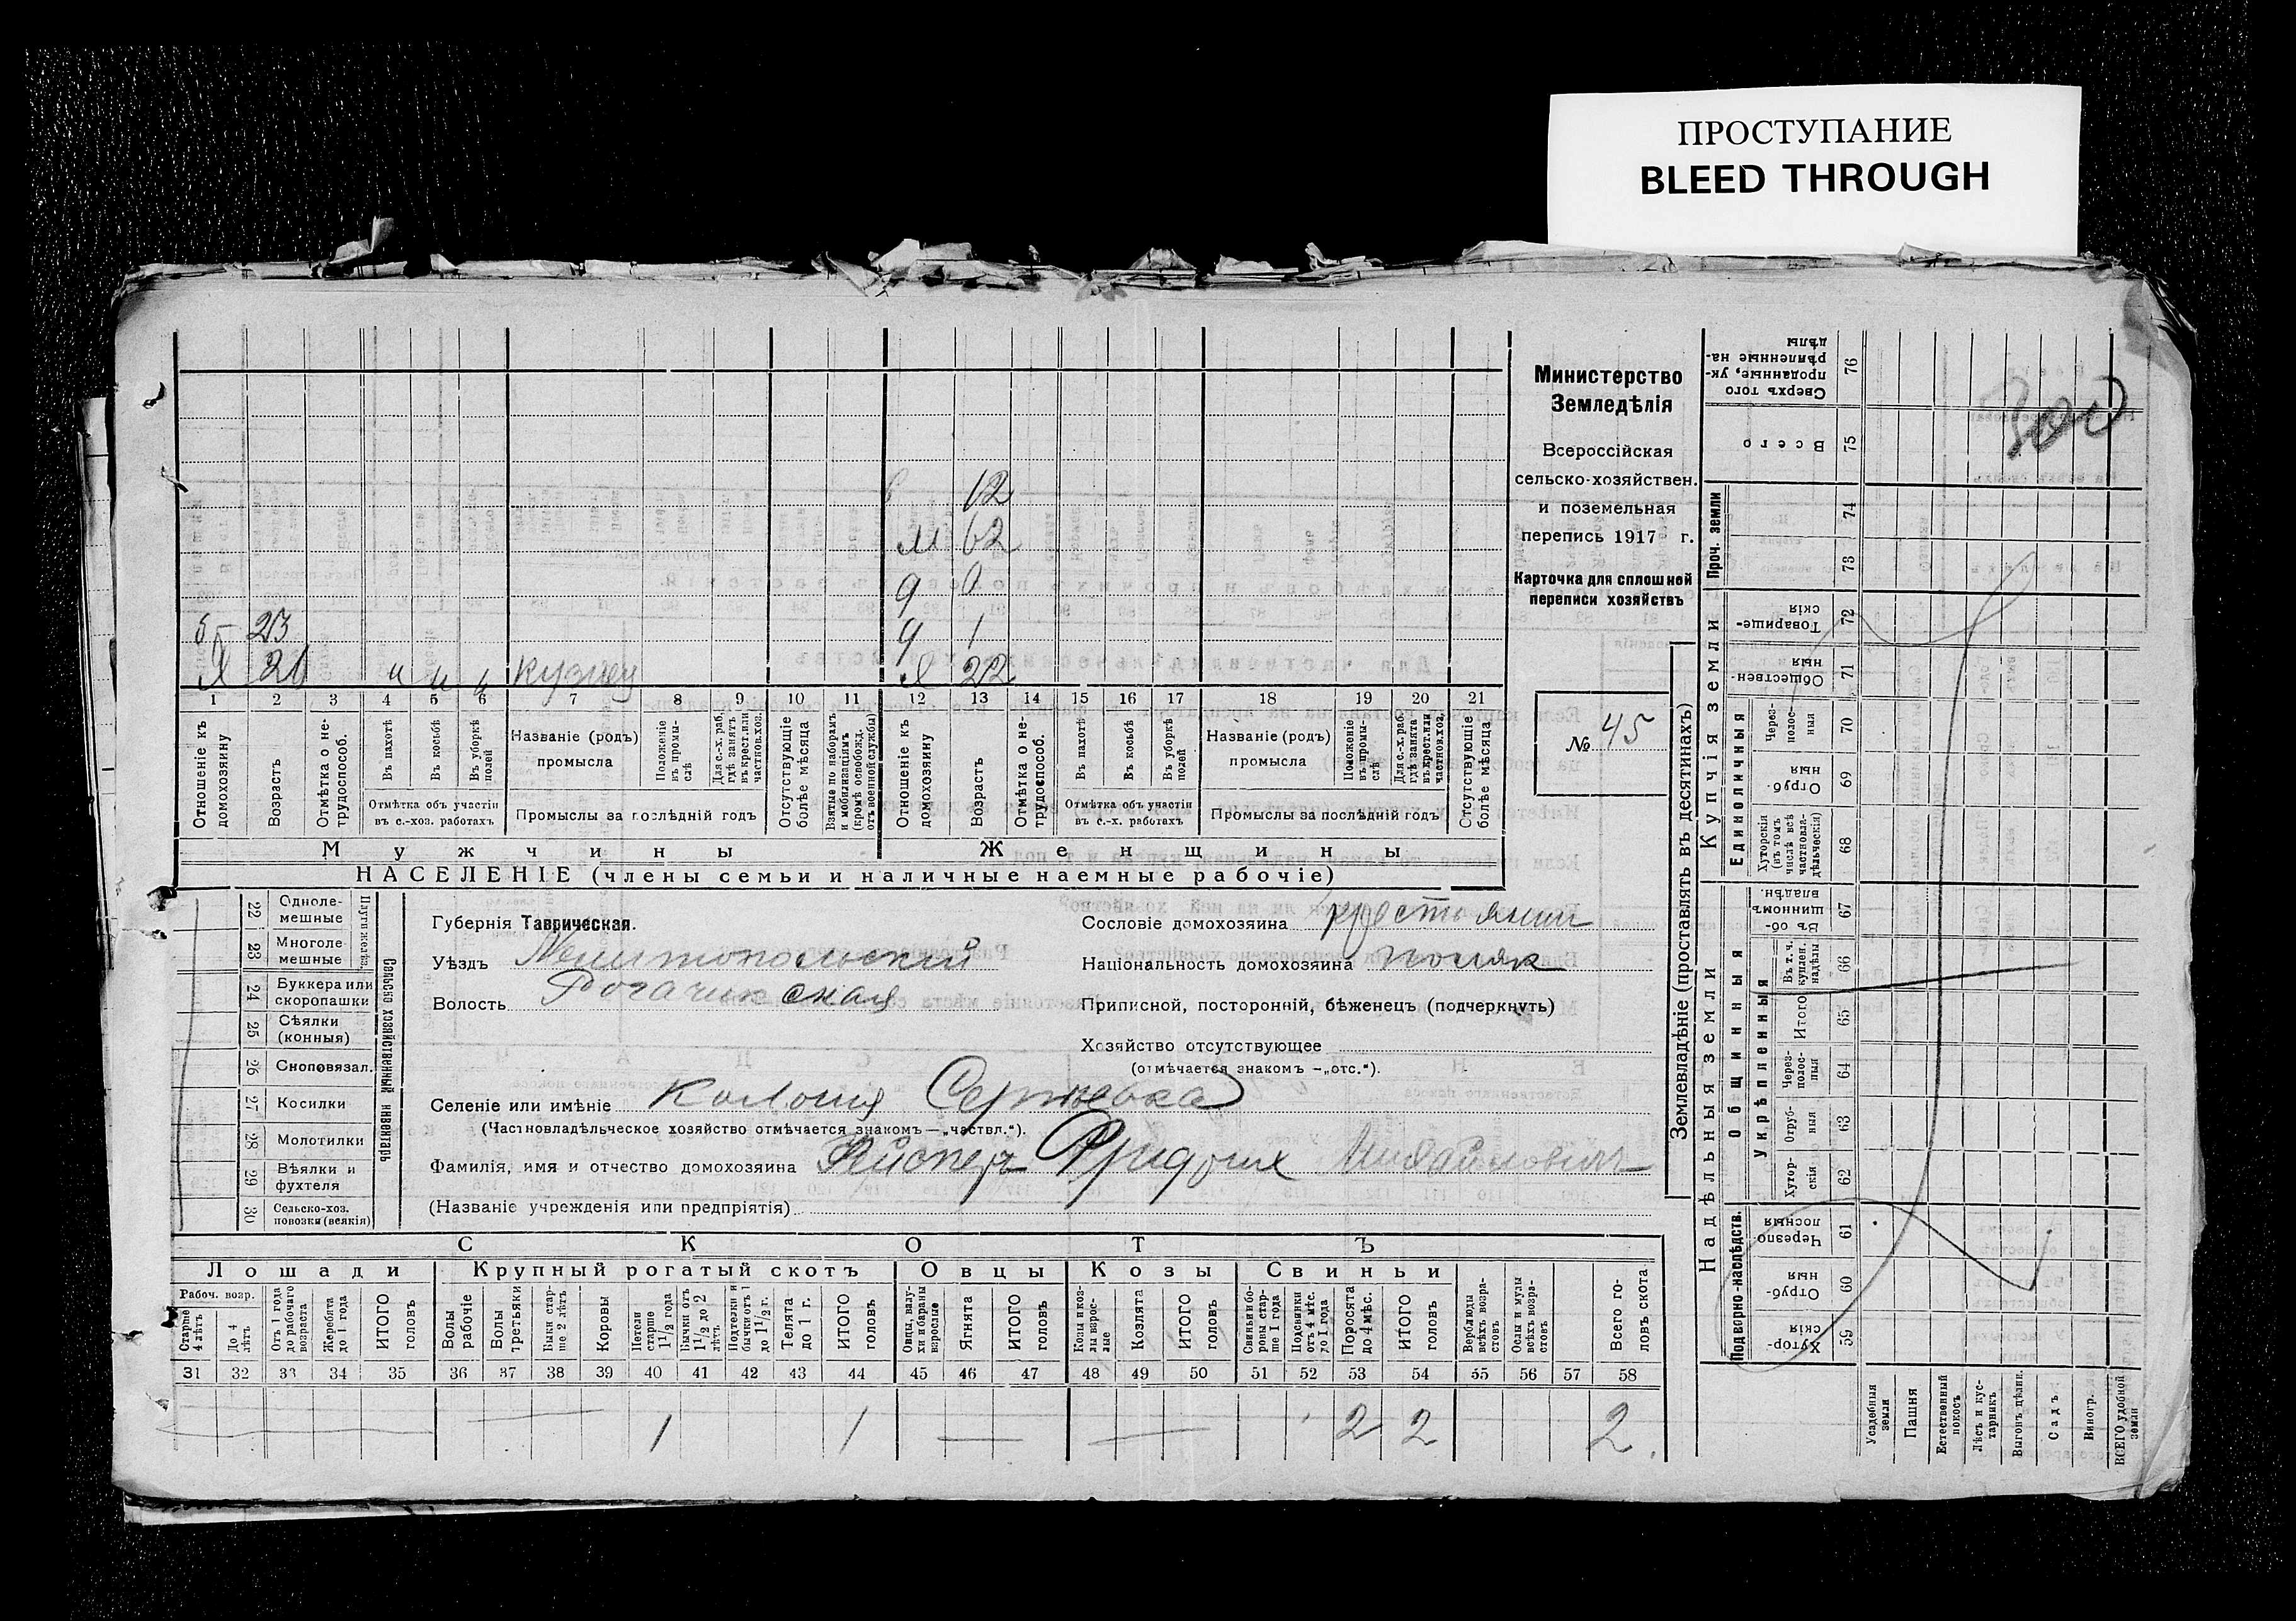 ПРОСТУПАНИЕ
BLEED THROUGH
300
Министерство
Земледѣлія
Всероссійская
сельско-хозяйствен.
и поземельная
перепись 1917 г.
Карточка для сплошной
переписи хозяйствъ
№ 45
12
М 62
9 0
9 1
Б 23
Я 21 и и и кузнец
22
1 2 3 4 5 6 7 8 9 10 11 12 13 14 15 16 17 18 19 20 21
Отношеніе къ домохозяину
Возрастъ
Отмѣтка о не-трудоспособ.
Въ пахотѣ
Въ косьбѣ
Въ уборкѣ полей
Отмѣтка объ участіи
въ с.-хоз. работахъ
Названіе (родъ)
промысла
Положеніе въ промы-слѣ
Для с.-х. раб., гдѣ занятъ въ крест. или частнов. хоз.
Промыслы за послѣдній годъ
Отсутствующіе болѣе мѣсяца
Взятые по наборамъ и мобилизаціямъ (кромѣ освобожд. отъ военной службы)
Отношеніе къ домохозяину
Возрастъ
Отмѣтка о не-трудоспособ.
Въ пахотѣ
Въ косьбѣ
Въ уборкѣ полей
Отмѣтка объ участіи
въ с.-х. работахъ
Названіе (родъ)
промысла
Положеніе въ промы-слѣ
Для с.-х. раб. гдѣ занята въ крест. или частнов. хоз.
Промыслы за послѣдній годъ
Отсутствующіе болѣе мѣсяца
Мужчины Женщины
НАСЕЛЕНІЕ (члены семьи и наличные наемные рабочіе)
22 Одноле-мешные
23 Многоле-мешные
Плуги желѣз.
24 Буккера или скоропашки
25 Сѣялки (конныя)
26 Сноповязал.
27 Косилки
28 Молотилки
29 Вѣялки и фухтеля
30 Сельско-хоз. повозки (всякія)
Сельско хозяйственный инвентарь
Губернія Таврическая.
Уѣздъ Мелитопольскій
Волость Рогачикская
Сословіе домохозяина крестьянин
Національность домохозяина поляк
Приписной, посторонній, бѣженецъ (подчеркнуть)
Хозяйство отсутствующее
(отмѣчается знакомъ —„отс.“).
Селеніе или имѣніе Колонія Сергѣевка
(Частновладѣльческое хозяйство отмѣчается знакомъ—„частвл.“).
Фамилія, имя и отчество домохозяина Фридрих Михайлович
(Названіе учрежденія или предпріятія)
СКОТЪ
Лошади Крупный рогатый скотъ Овцы Козы Свиньи
Рабоч. возр.
Старше 4 лѣтъ
До 4 лѣтъ
Отъ 1 года до рабочаго возраста
Жеребята до 1 года
ИТОГО головъ
Волы рабочіе
Волы третьяки
Быки стар-ше 2 лѣтъ
Коровы
Нетели старше 1 1/2 года
Бычки отъ 1 1/2 до 2 лѣтъ
Подтелки и бычки отъ 1 до 1 1/2 г.
Телята до 1 г.
ИТОГО головъ
Овцы, валу-хи и бараны взрослые
Ягнята
ИТОГО головъ
Козы и коз-лы взрос-лые
Козлята
ИТОГО головъ
Свиньи и бо-ровы стар-ше 1 года
Подсвинки отъ 4 мѣс. до 1 года
Поросята до 4 мѣс.
ИТОГО головъ
Верблюды всѣхъ возра-стовъ
Ослы и мулы всѣхъ возра-стовъ
Всего го-ловъ скота
31 32 33 34 35 36 37 38 39 40 41 42 43 44 45 46 47 48 49 50 51 52 53 54 55 56 57 58
1 1 2 2 2
Землевладѣніе (проставлять въ десятинахъ)
Надѣльныя земли Купчія земли Проч. земли
Подворно-наслѣдств. Общинныя Единоличныя
Укрѣпленныя
Сверхъ того проданные, ук-рѣпленные на-дѣлы 76
Всего 75
74
73
Товарище-скія 72
Обществен-ныя 71
Через-полос-ныя 70
Отруб-ныя 69
Хуторскія (въ томъ числѣ всѣ частновла-дѣльческія) 68
Въ об-щинномъ владѣн. 67
Въ т. ч. куплен. надѣлы 66
Итого 65
Через-полос-ныя 64
Отруб-ныя 63
Хутор-скія 62
Черезпо-лосныя 61
Отруб-ныя 60
Хутор-скія 59
Усадебная земля
Пашня
Естественный покосъ
Лѣсъ и кус-тарникъ
Выгонъ цѣлин.
Садъ
Виногр.
ВСЕГО удобной земли